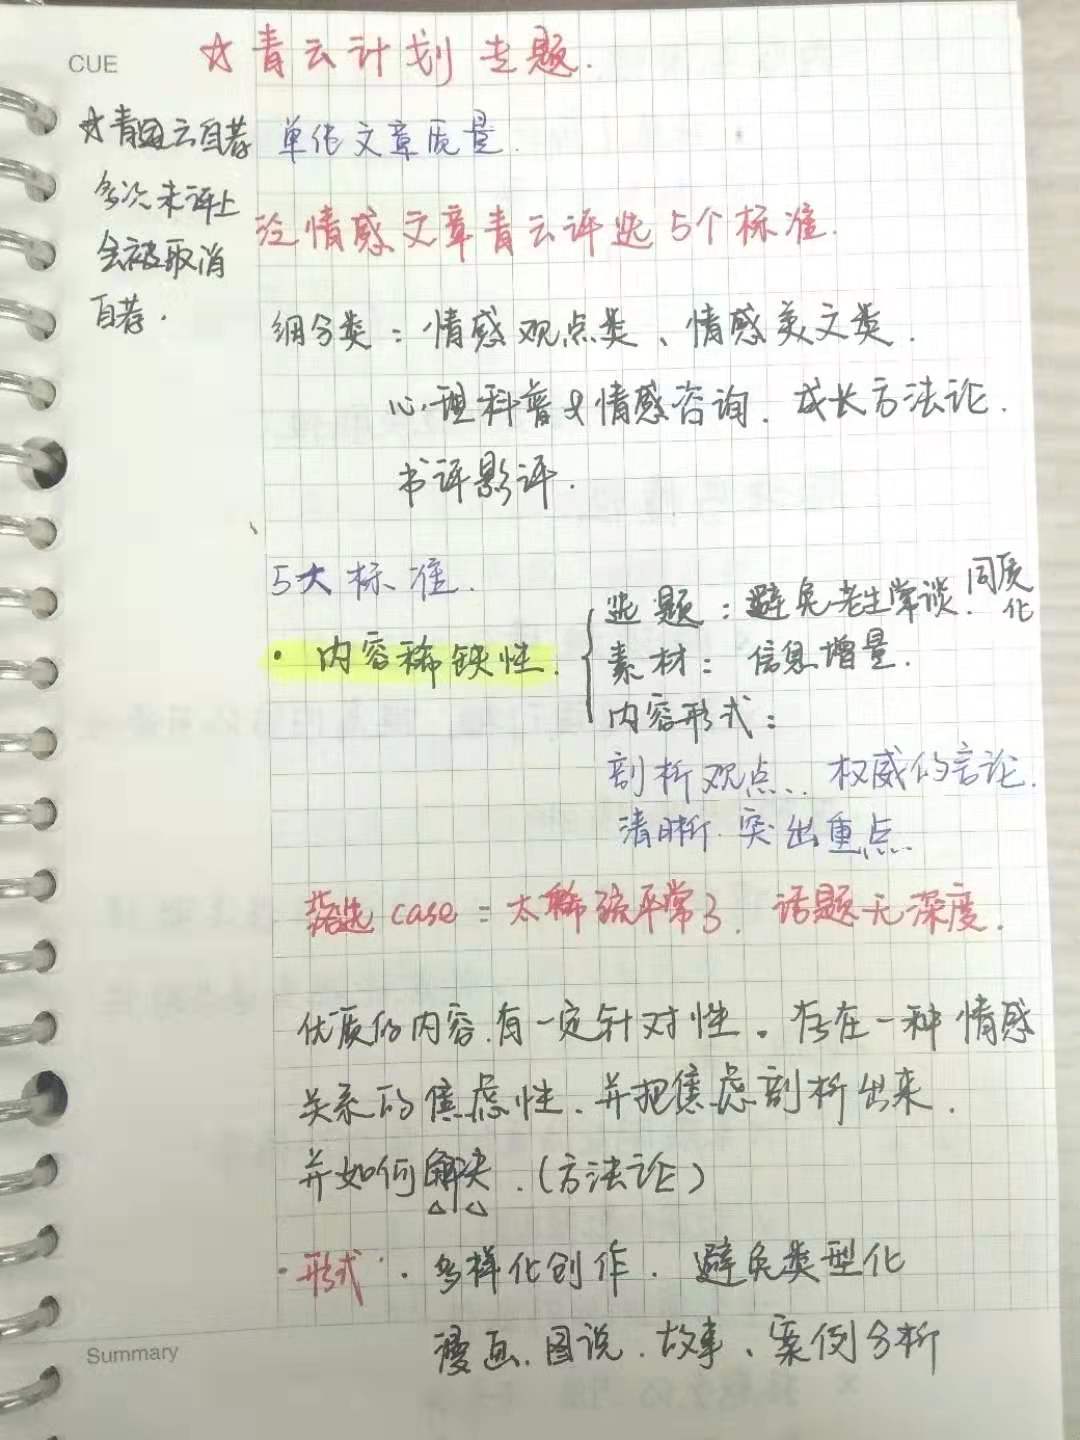 CUE
☆青云计划 专题.
☆青云自荐
多次未评上
会被取消
自荐.
单篇文章质量.
论情感文章青云评选5个标准.
细分类：情感观点类、情感美文类.
心理科普&情感咨询. 成长方法论.
书评影评.
5大标准.
· 内容稀缺性.
选题：避免老生常谈. 同质化
素材：信息增量.
内容形式：
剖析观点. 权威的言论.
清晰. 突出重点.
落选case：太稀疏平常了. 话题无深度.
优质的内容.有一定针对性。存在一种情感
关系的焦虑性.并把焦虑剖析出来.
并如何解决.(方法论)
·形式·. 多样化创作. 避免类型化
漫画.图说.故事、案例分析
Summary